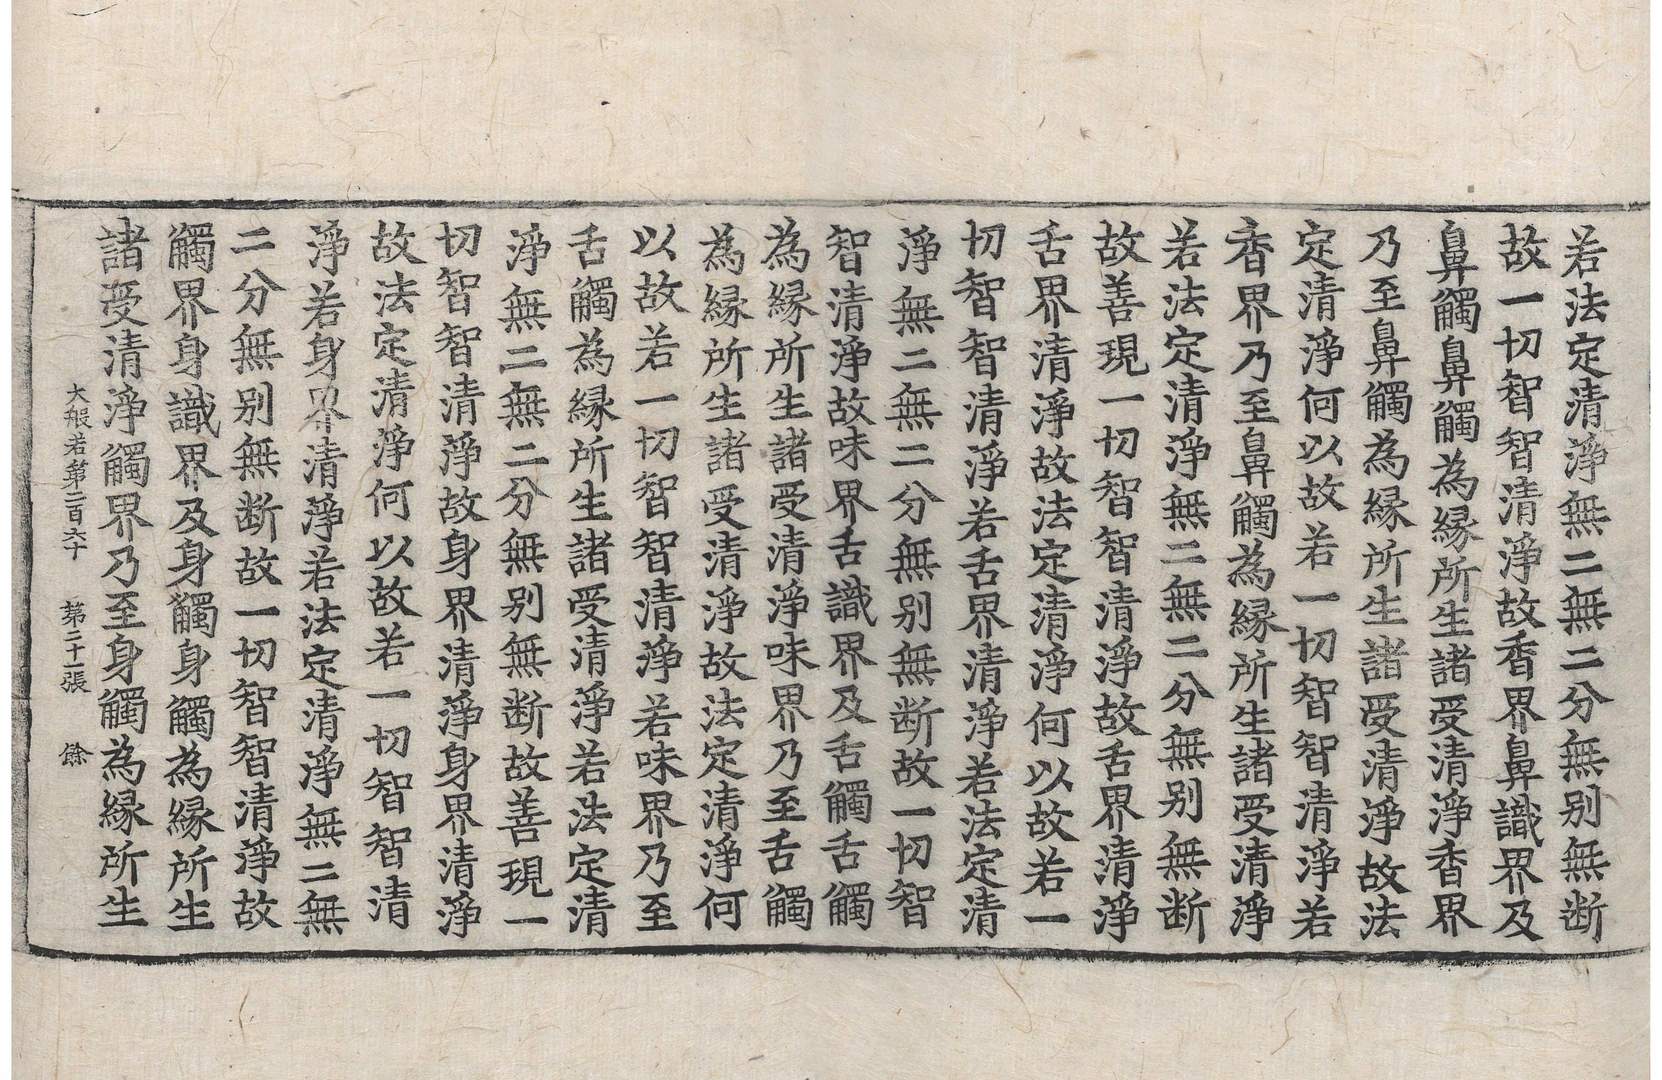 若法定清淨無二無二分無別無断
故一切智智清淨故香界鼻識界及
鼻觸鼻觸為縁所生諸受清淨香界
乃至鼻觸為縁所生諸受清淨故法
定清淨何以故若一切智智清淨若
香界乃至鼻觸為縁所生諸受清淨
若法定清淨無二無二分無別無断
故善現一切智智清淨故舌界清淨
舌界清淨故法定清淨何以故若一
切智智清淨若舌界清淨若法定清
淨無二無二分無別無断故一切智
智清淨故味界舌識界及舌觸舌觸
為縁所生諸受清淨味界乃至舌觸
為縁所生諸受清淨故法定清淨何
以故若一切智智清淨若味界乃至
舌觸為縁所生諸受清淨若法定清
淨無二無二分無別無断故善現一
切智智清淨故身界清淨身界清淨
故法定清淨何以故若一切智智清
淨若身界清淨若法定清淨無二無
二分無別無断故一切智智清淨故
觸界身識界及身觸身觸為縁所生
諸受清淨觸界乃至身觸為縁所生
大般若第二百六十 第二十一張 餘